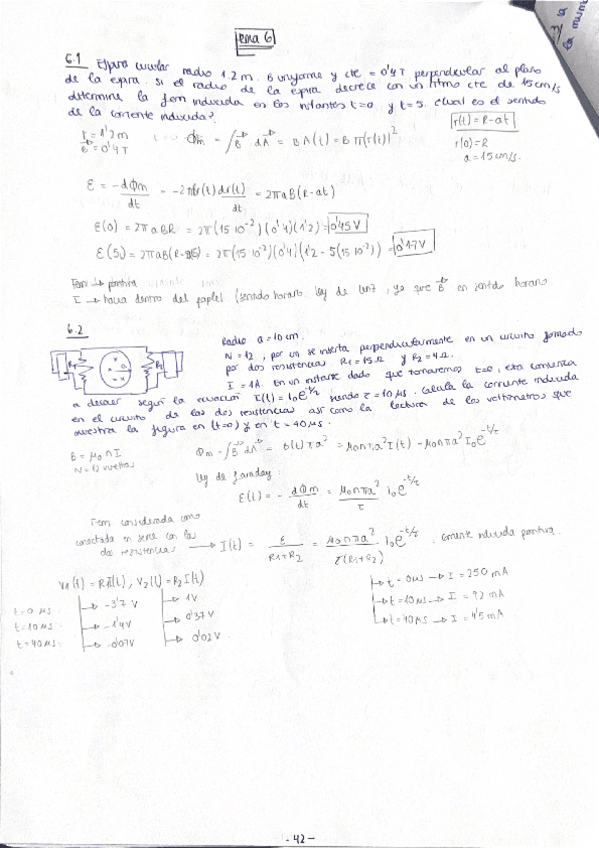 Tema 6
6.1 Espira circular radio 1.2m. B uniforme y cte = 0'4T perpendicular al plano
de la espira. Si el radio de la espira decrece con un ritmo cte de 15cm/s
determine la fem inducida en los instantes t=0 y t=5. ¿Cual es el sentido
de la corriente inducida?
r(t) = R-at
r = 1'2m
B = 0'4T
Φm = ∫B dA = B A(t) = B π(r(t))²
r(0) = R
a = 15cm/s.
ε = -dΦm/dt = -2πBr(t) dr(t)/dt = 2πaB(R-at)
ε(0) = 2πaBR = 2π(15·10⁻²)(0'4)(1'2) = 0'45V
ε(5) = 2πaB(R-5) = 2π(15·10⁻²)(0'4)(1'2-5(15·10⁻²)) = 0'17V
I → hacia dentro del papel (sentido horario. ley de lenz, ya que B en sentido horario
6.2
Radio a = 10cm.
N = 12, por un se inserta perpendicularmente en un circuito formado
por dos resistencias R1 = 15Ω y R2 = 4Ω.
I = 1A. En un instante dado que tomaremos t=0, esta comienza
a decaer según la ecuación I(t) = I₀e^(-t/τ) siendo τ = 10μs. Calcula la corriente inducida
en el circuito de las dos resistencias así como la lectura de los voltímetros que
muestra la figura en (t=0) y en t = 40μs.
B = μ₀nI
N = 12 vueltas
Φm = ∫B dA = B(t)πa² = μ₀nπa²I(t) = μ₀nπa²I₀e^(-t/τ)
ley de Faraday:
ε(t) = -dΦm/dt = μ₀nπa²/τ I₀e^(-t/τ)
Fem considerada como
conectada en serie con las
dos resistencias → I(t) = ε/(R1+R2) = μ₀nπa²/τ(R1+R2) I₀e^(-t/τ). corriente inducida positiva.
V1(t) = R1I(t), V2(t) = R2I(t)
t = 0μs → -3'7V → 1V
t = 10μs → -1'4V → 0'37V
t = 40μs → -0'07V → 0'02V
t = 0μs → I = 250mA
t = 10μs → I = 92mA
t = 40μs → I = 4'5mA
-42-